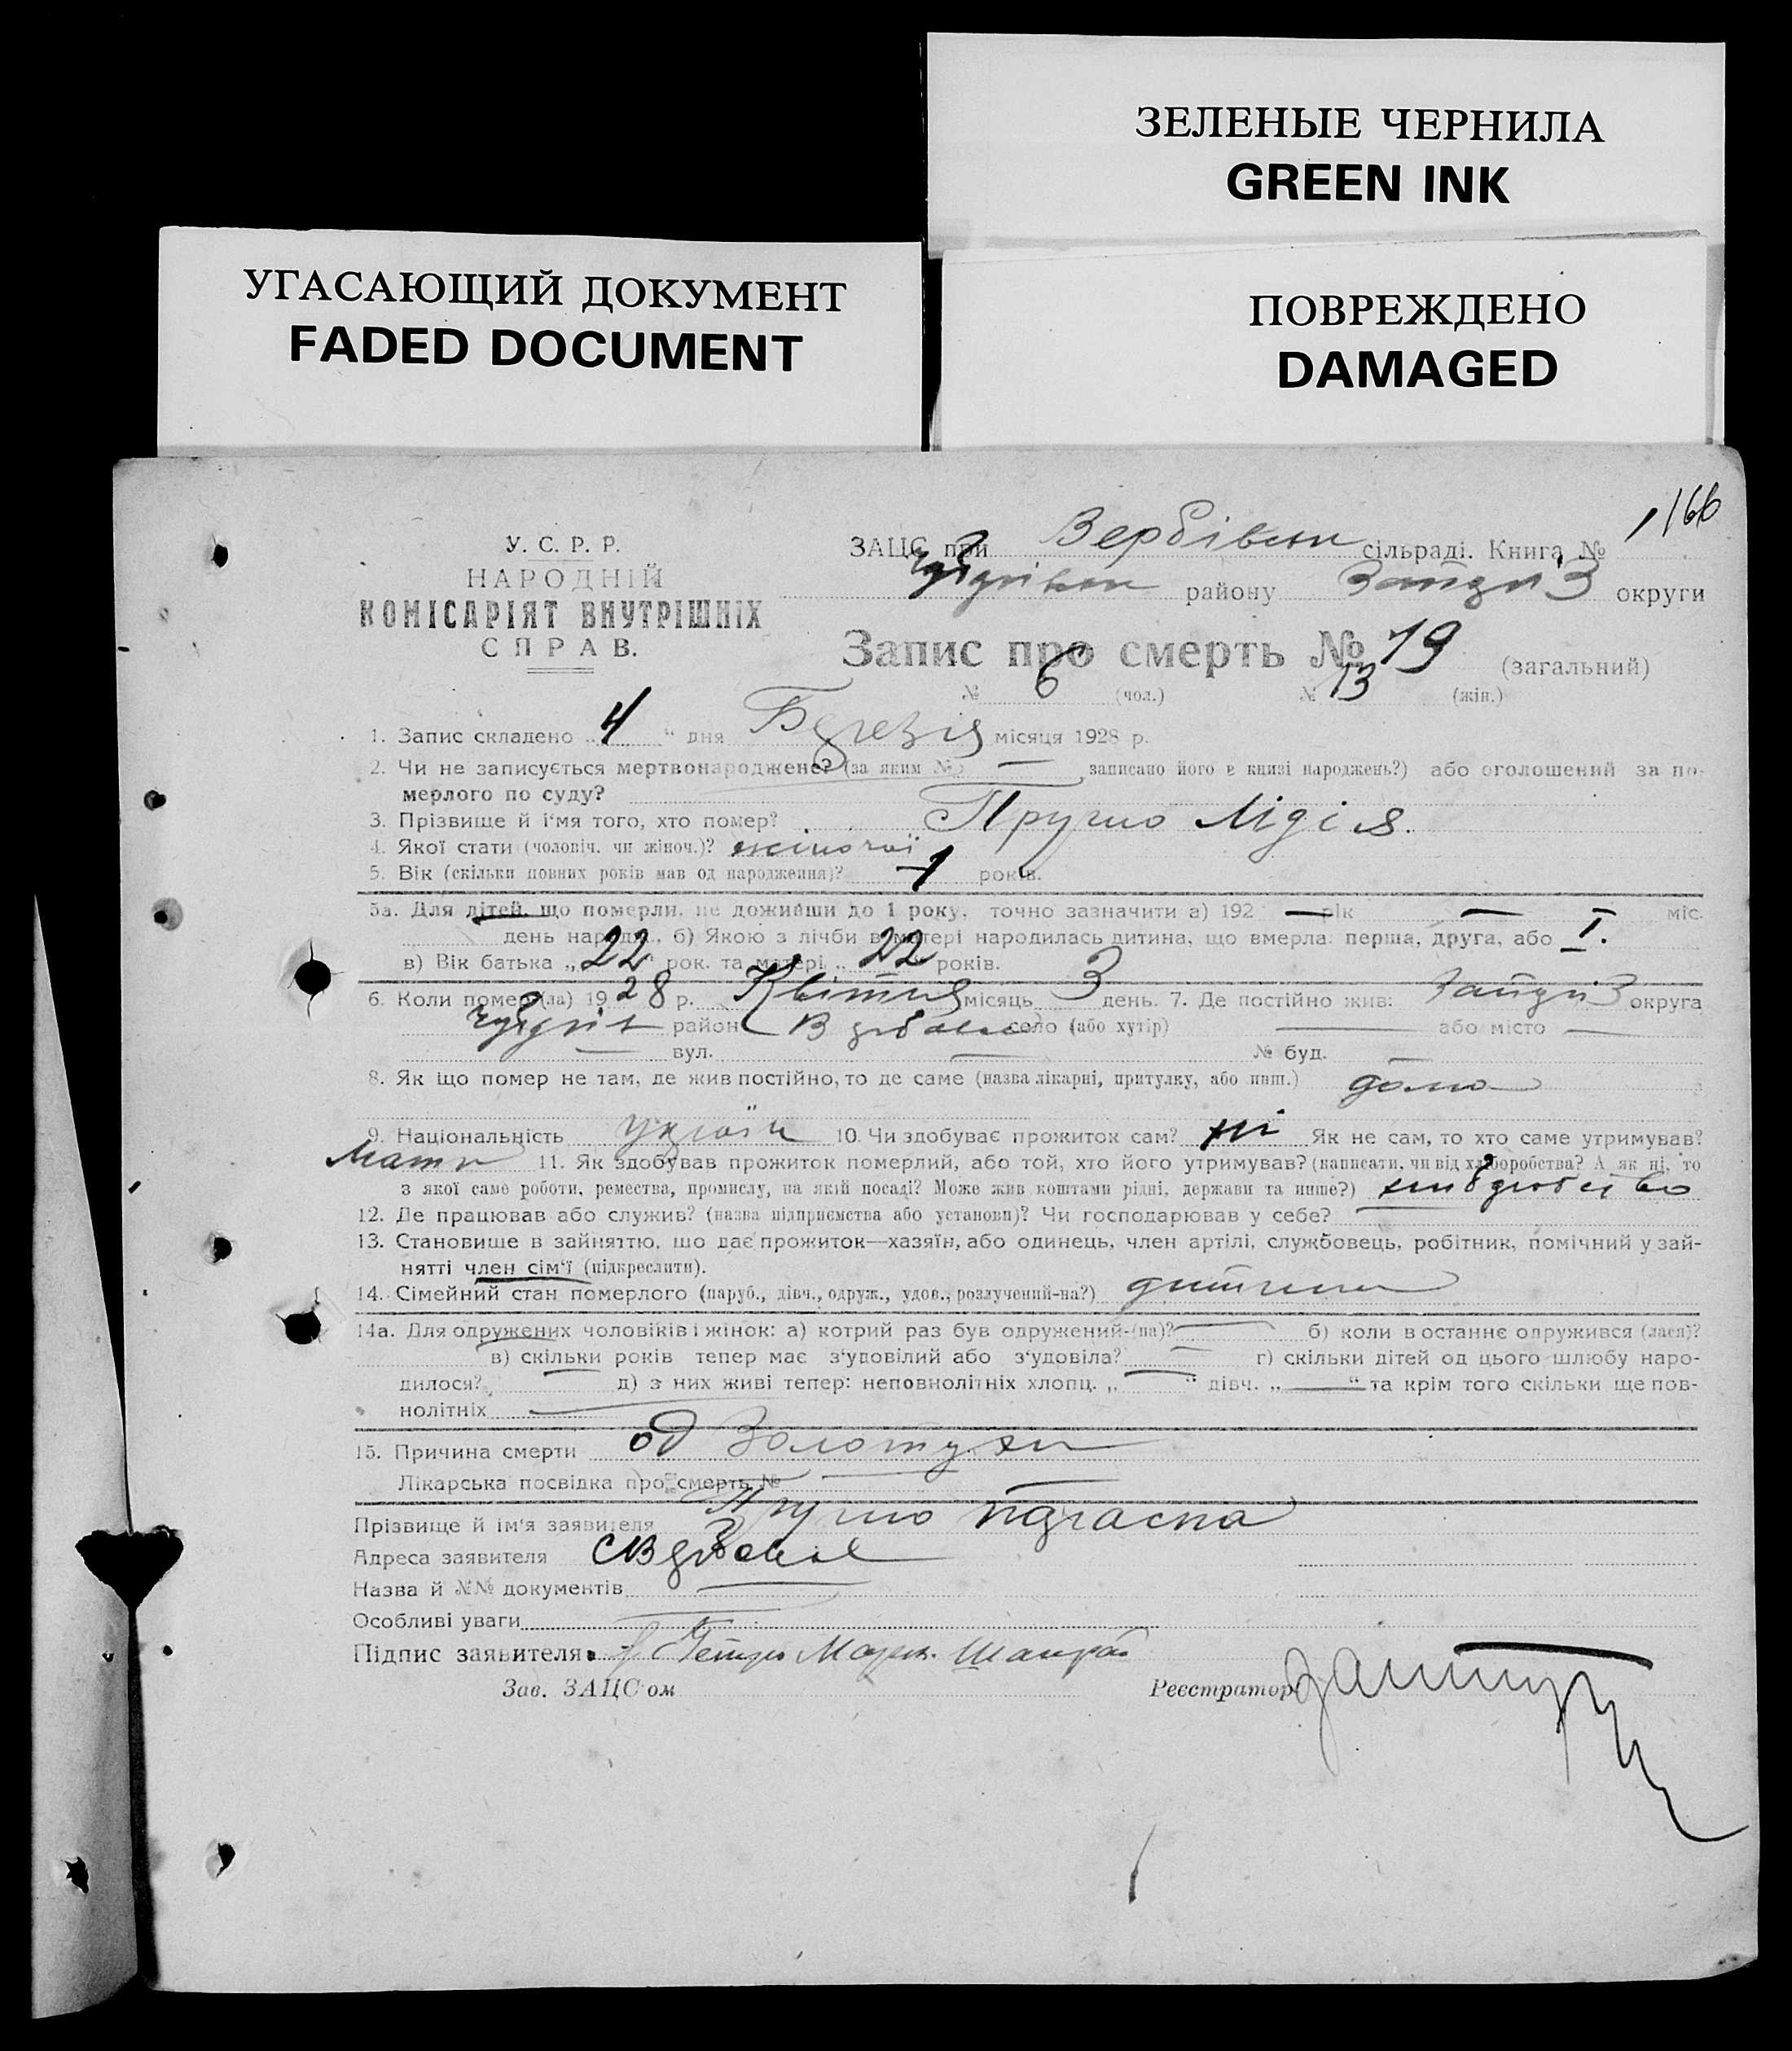 ЗЕЛЕНЫЕ ЧЕРНИЛА
GREEN INK
УГАСАЮЩИЙ ДОКУМЕНТ
FADED DOCUMENT
ПОВРЕЖДЕНО
DAMAGED
166
У. С. Р. Р.
НАРОДНІЙ
КОМІСАРІЯТ ВНУТРІШНІХ
СПРАВ.
ЗАЦС при Вербівськ сільраді. Книга №
району округи
Запис про смерть № 19 (загальний)
№ 6 (чол.) № 13 (жін.)
1. Запис складено „ 4 " дня Березня місяця 1928 р.
2. Чи не записується мертвонароджене? (за яким № — записано його в книзі народжень?) або оголошений за по-
мерлого по суду?
3. Прізвище й і'мя того, хто помер? Лідія.
4. Якої стати (чоловіч. чи жіноч.)? жіночої
5. Вік (скільки повних років мав од народження)? 1 років.
5а. Для дітей, що померли, не доживши до 1 року, точно зазначити а) 192 — рік — міс.
день народж., б) Якою з лічби в матері народилась дитина, що вмерла: перша, друга, або I.
в) Вік батька „ 22 " рок. та матері „ 22 " років.
6. Коли помер (ла) 1928 р. Квітня місяць 3 день. 7. Де постійно жив: округа
район село (або хутір) — або місто —
— вул. — № буд. —
8. Як що помер не там, де жив постійно, то де саме (назва лікарні, притулку, або инш.) дома
9. Національність україн 10. Чи здобуває прожиток сам? ні Як не сам, то хто саме утримував?
Мати 11. Як здобував прожиток померлий, або той, хто його утримував? (написати, чи від хліборобства? А як ні, то
з якої саме роботи, ремества, промислу, на якій посаді? Може жив коштами рідні, держави та инше?) хліборобство
12. Де працював або служив? (назва підприємства або установи)? Чи господарював у себе?
13. Становище в зайняттю, що дає прожиток—хазяїн, або одинець, член артілі, службовець, робітник, помічний у зай-
нятті член сім'ї (підкреслити).
14. Сімейний стан померлого (паруб., дівч., одруж., удов., розлучений-на?) дитина
14а. Для одружених чоловіків і жінок: а) котрий раз був одружений-(на)? — б) коли в останнє одружився (лася)?
— в) скільки років тепер має з'удовілий або з'удовіла? — г) скільки дітей од цього шлюбу наро-
дилося? — д) з них живі тепер: неповнолітніх хлопц. „ — " дівч. „ — " та крім того скільки ще пов-
нолітніх —
15. Причина смерти од Золотухи
Лікарська посвідка про смерть № —
Прізвище й ім'я заявителя
Адреса заявителя
Назва й №№ документів —
Особливі уваги —
Підпис заявителя:
Зав. ЗАЦС'ом Реєстратор